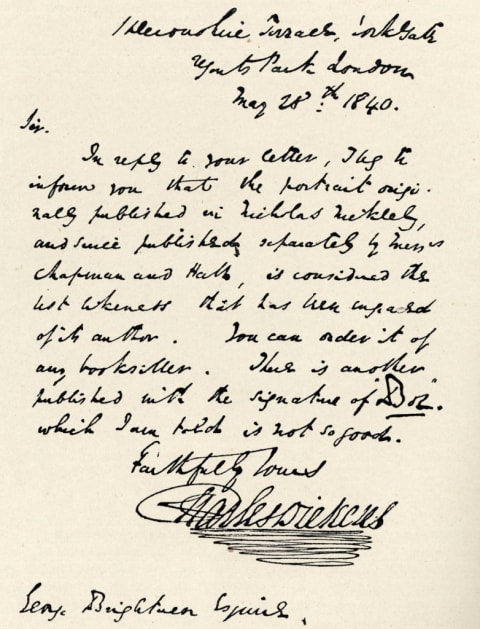 1 Devonshire Terrace, York Gate
Regents Park London
May 28th 1840.
Sir.
In reply to your letter, I beg to
inform you that the portrait origi-
nally published in Nicholas Nickleby,
and since published separately by Messrs
Chapman and Hall, is considered the
best likeness that has been engraved
of its author. You can order it of
any bookseller. There is another
published with the signature of "Boz".
which I am told is not so good.
Faithfully Yours
Charles Dickens
George Brightwen Esquire.